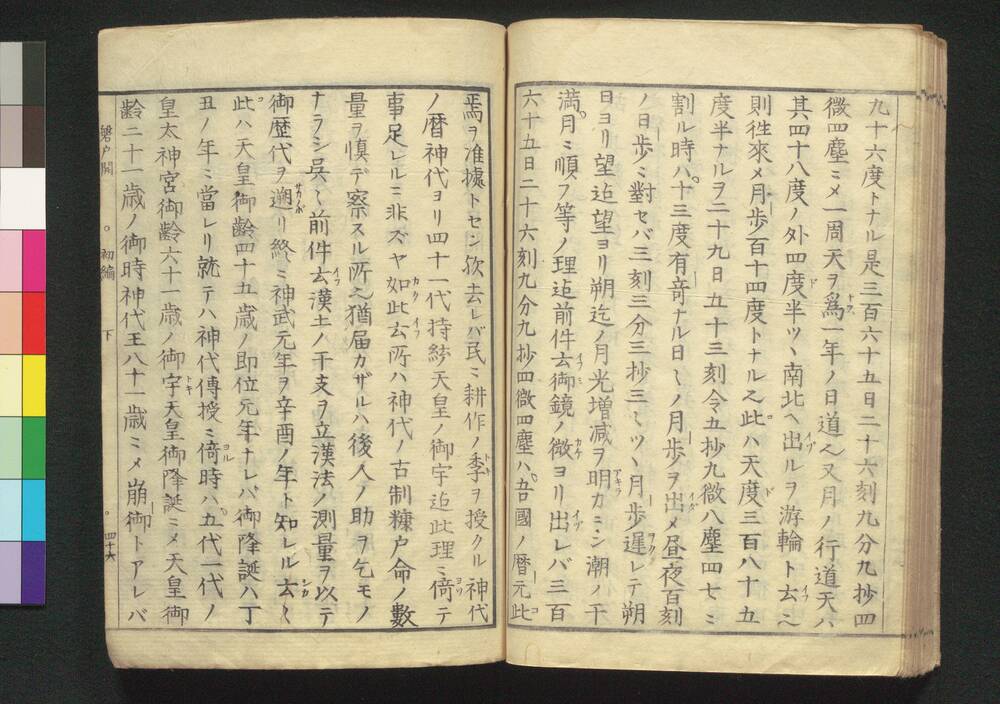 九十六度トナル是三百六十五日二十六刻九分九抄四
微四塵ミメ一周天ヲ爲一年ノ日道〻又月ノ行道天ハ
其四十八度ノ外四度半ツヽ南北ヘ出ルヲ游輪ト云
則徃來メ月歩百十四度トナル之此ハ天度三百八十五
度半ナルヲ二十九日五十三刻令五抄九微八塵四七ミ
割ル時ハ十三度有竒ナル日〻ノ月歩ヲ出メ昼夜百刻
ノ日歩ミ對セバ三刻三分三抄三ミツヽ月歩遲レテ朔
日ヨリ望迠望ヨリ朔迄ノ月光増減ヲ明カミシ潮ノ干
満月ミ順フ等ノ理迠前件云御鏡ノ微ヨリ出レバ三百
六十五日二十六刻九分九抄四微四塵ハ吾國ノ暦元此
焉ヲ准據トセン欤去レバ民ミ耕作ノ季ヲ授クル神代
ノ暦神代ヨリ四十一代持統天皇ノ御宇迠此理ミ倚テ
事足レルミ非ズヤ如此云所ハ神代ノ古制糠戸命ノ數
量ヲ慎デ察スル所之猶届カザルハ後人ノ助ヲ乞モノ
ナラシ呉〻前件云漢土ノ干支ヲ立漢法ノ測量ヲ以テ
御歴代ヲ遡リ終ミ神武元年ヲ辛酉ノ年ト知レル云〻
此ハ天皇御齢四十五歳ノ即位元年ナレバ御降誕ハ丁
丑ノ年ミ當レリ就テハ神代傳授ミ倚時ハ五代一代ノ
皇太神宮御齢六十一歳ノ御宇天皇御降誕ミメ天皇御
齢二十一歳ノ御時神代王八十一歳ミメ崩御トアレバ
磐戸開 初編 下 四十六